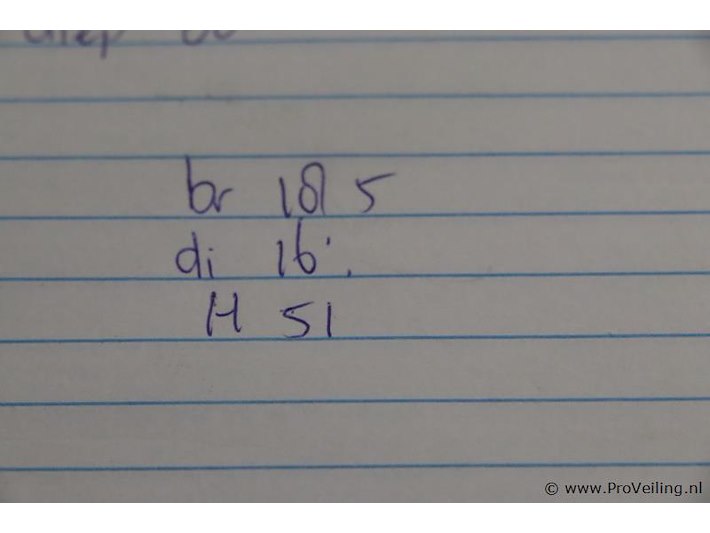 diep
br 18,5
di 16
H 51
© www.ProVeiling.nl